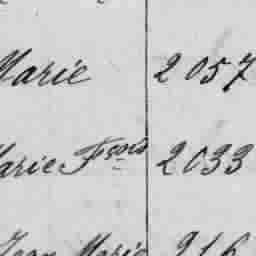 Marie 2057
Marie Fçois 2033
Jean Marie 216